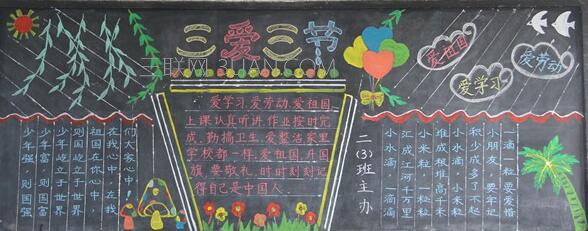 三爱三节
爱祖国
爱学习
爱劳动
少年强，则国强
少年富，则国富
少年屹立于世界
则国屹立于世界
祖国在你心中，
在我心中，在
们大家心中！
爱学习，爱劳动，爱祖国，
上课认真听讲，作业按时完
成，勤搞卫生，爱整洁，家里
学校都一样，爱祖国，升国
旗，要敬礼，时时刻刻记
得自己是中国人。
二(3)班主办
小水滴，一滴滴
汇成江河千
小米粒，一粒粒
堆成粮堆高千米
小水滴，小米粒
积少成多了不起
小朋友，要牢记
一滴一粒要爱惜
三联网 3LIAN.COM